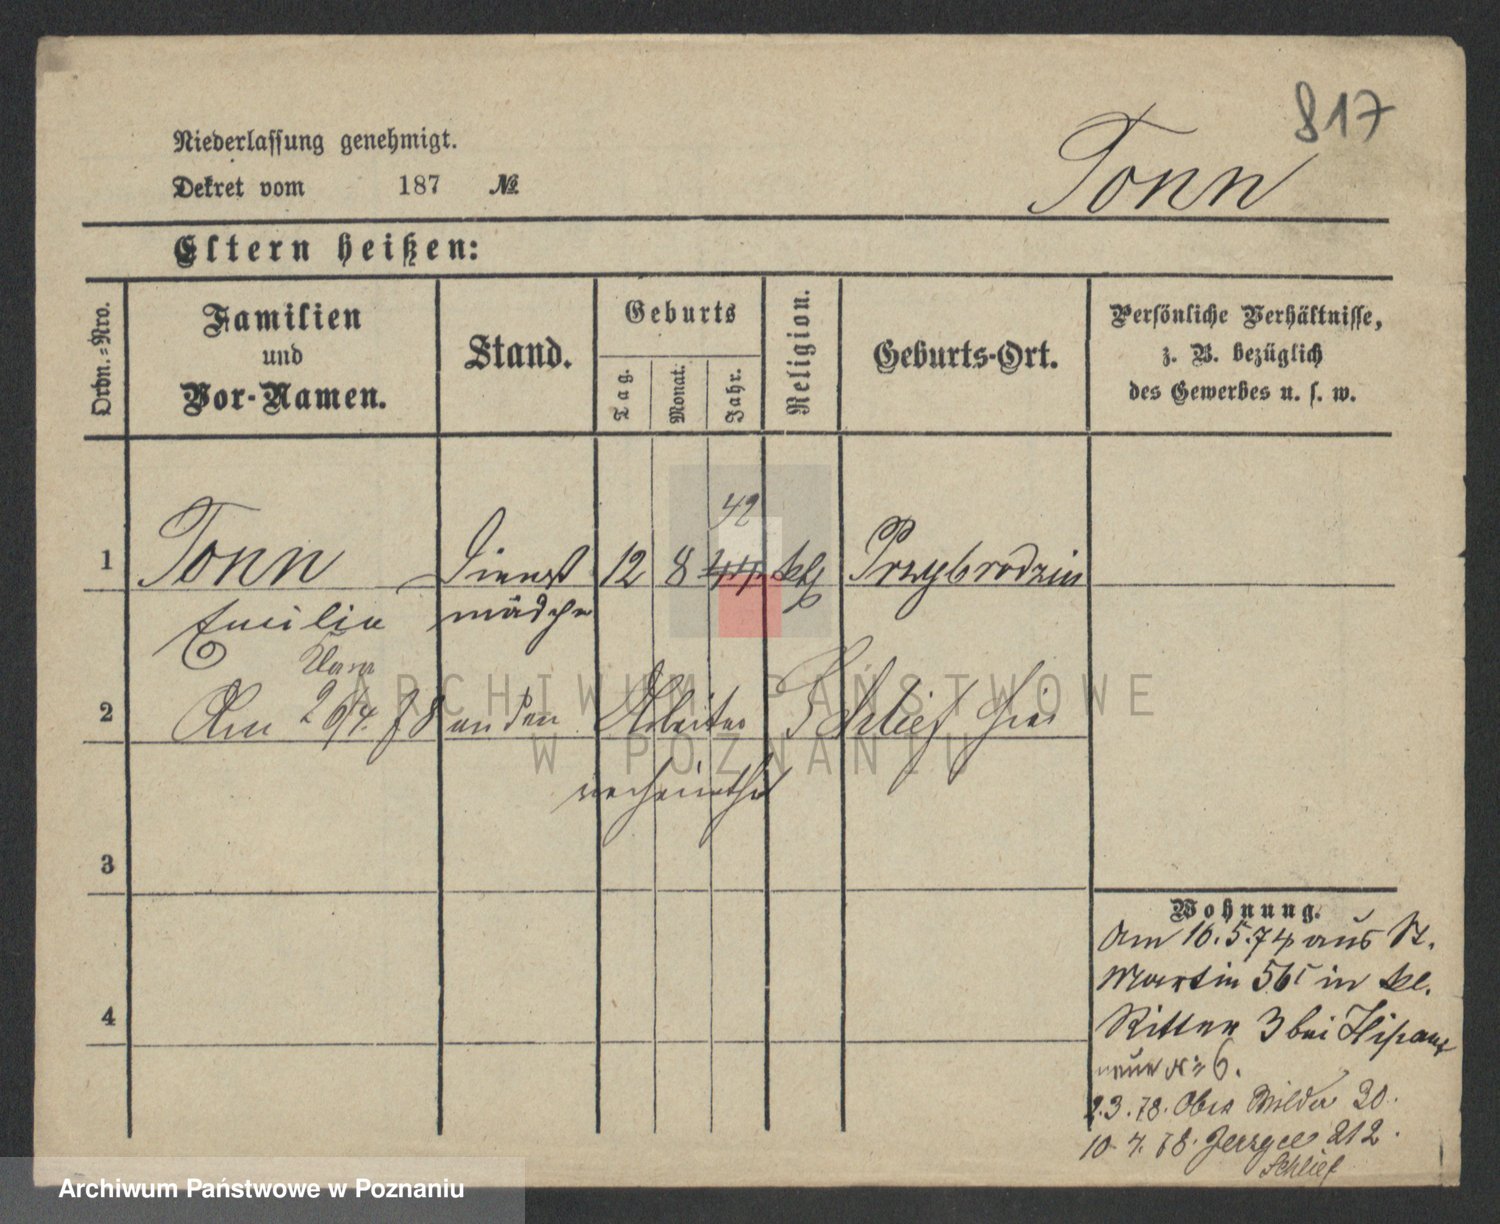 817
Niederlassung genehmigt.
Tonn
Dekret vom 187 №
Eltern heißen:
Ordn.=Nro.
Familien
und
Vor-Namen.
Stand.
Geburts
Tag.
Monat.
Jahr.
Religion.
Geburts-Ort.
Persönliche Verhältnisse,
z. B. bezüglich
des Gewerbes u. s. w.
42
1 Tonn Dienst 12 8 44 kth Przybrodzin
Emilie mädchen
Clara
2 Am 29/4. 78 an den Arbeiter Schlief hier
verheirathet
3
4
Wohnung.
Am 16.5.74 aus St.
Martin 56 in kl.
Ritter 3 bei
neue № 6.
2.3.78. Ober Wilda 30.
10.4.78. Jerzyce 212.
Schlief
ARCHIWUM PAŃSTWOWE
W POZNANIU
Archiwum Państwowe w Poznaniu